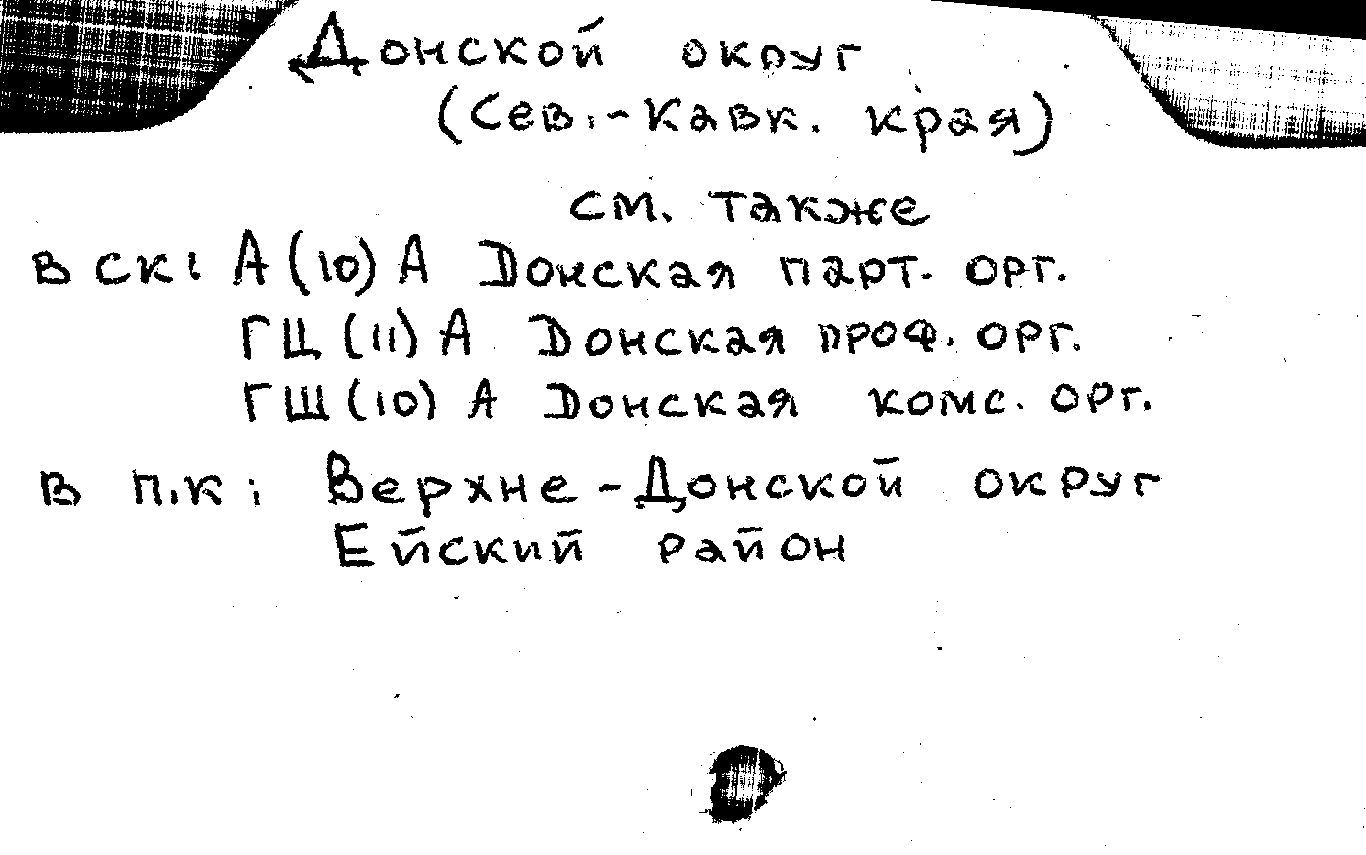 Донской округ
(Сев.-Кавк. края)
см. также
в ск: А(10)А Донская парт. орг.
ГЦ(11)А Донская проф. орг.
ГШ(10)А Донская комс. орг.
в п.к: Верхне-Донской округ
Ейский район